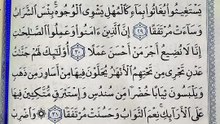 يَسْتَغِيثُوا۟ يُغَاثُوا۟ بِمَآءٍ كَٱلْمُهْلِ يَشْوِى ٱلْوُجُوهَ بِئْسَ ٱلشَّرَابُ
وَسَآءَتْ مُرْتَفَقًا ٢٩ إِنَّ ٱلَّذِينَ ءَامَنُوا۟ وَعَمِلُوا۟ ٱلصَّٰلِحَٰتِ
إِنَّا لَا نُضِيعُ أَجْرَ مَنْ أَحْسَنَ عَمَلًا ٣٠ أُو۟لَٰٓئِكَ لَهُمْ جَنَّٰتُ
عَدْنٍ تَجْرِى مِن تَحْتِهِمُ ٱلْأَنْهَٰرُ يُحَلَّوْنَ فِيهَا مِنْ أَسَاوِرَ مِن ذَهَبٍ
وَيَلْبَسُونَ ثِيَابًا خُضْرًا مِّن سُندُسٍ وَإِسْتَبْرَقٍ مُّتَّكِـِٔينَ فِيهَا
عَلَى ٱلْأَرَآئِكِ نِعْمَ ٱلثَّوَابُ وَحَسُنَتْ مُرْتَفَقًا ٣١ وَٱضْرِبْ